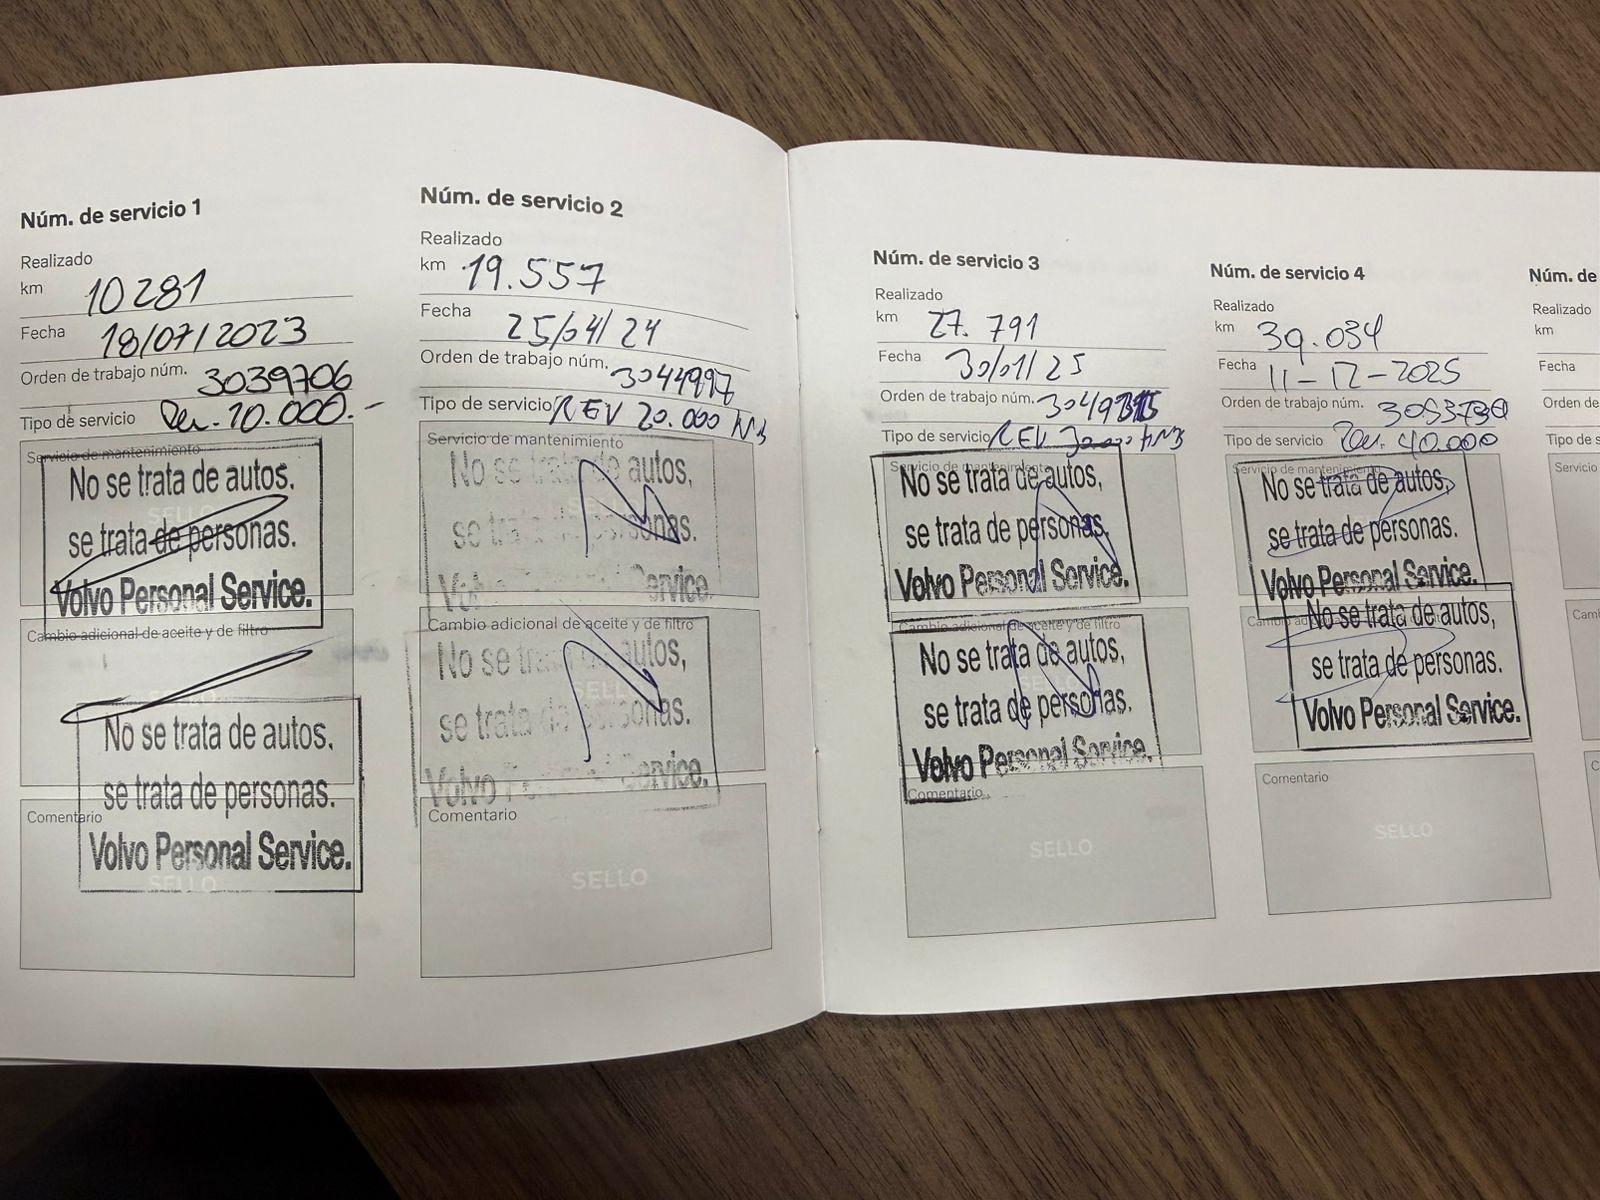 Núm. de servicio 1
Realizado
km 10281
Fecha 18/07/2023
Orden de trabajo núm. 3039706
Tipo de servicio Rev. 10.000.-
Servicio de mantenimiento
No se trata de autos,
se trata de personas.
Volvo Personal Service.
Cambio adicional de aceite y de filtro
SELLO
No se trata de autos,
se trata de personas.
Comentario
Volvo Personal Service.
SELLO
Núm. de servicio 2
Realizado
km 19.557
Fecha 25/04/24
Orden de trabajo núm. 3044997
Tipo de servicio REV 20.000
Servicio de mantenimiento
No se trata de autos,
se trata de personas.
Volvo Personal Service.
Cambio adicional de aceite y de filtro
No se trata de autos,
SELLO
se trata de personas.
Volvo Service.
Comentario
SELLO
Núm. de servicio 3
Realizado
km 27.791
Fecha 30/01/25
Orden de trabajo núm.
Tipo de servicio REV
Servicio de mantenimiento
No se trata de autos,
se trata de personas.
Volvo Personal Service.
Cambio adicional de aceite y de filtro
No se trata de autos,
se trata de personas.
Volvo Personal Service.
Comentario
SELLO
Núm. de servicio 4
Realizado
km 39.034
Fecha 11-12-2025
Orden de trabajo núm.
Tipo de servicio Rev. 40.000
Servicio de mantenimiento
No se trata de autos,
se trata de personas.
Volvo Personal Service.
No se trata de autos,
se trata de personas.
Volvo Personal Service.
Comentario
SELLO
Núm. de
Realizado
km
Fecha
Orden de
Tipo de s
Servicio